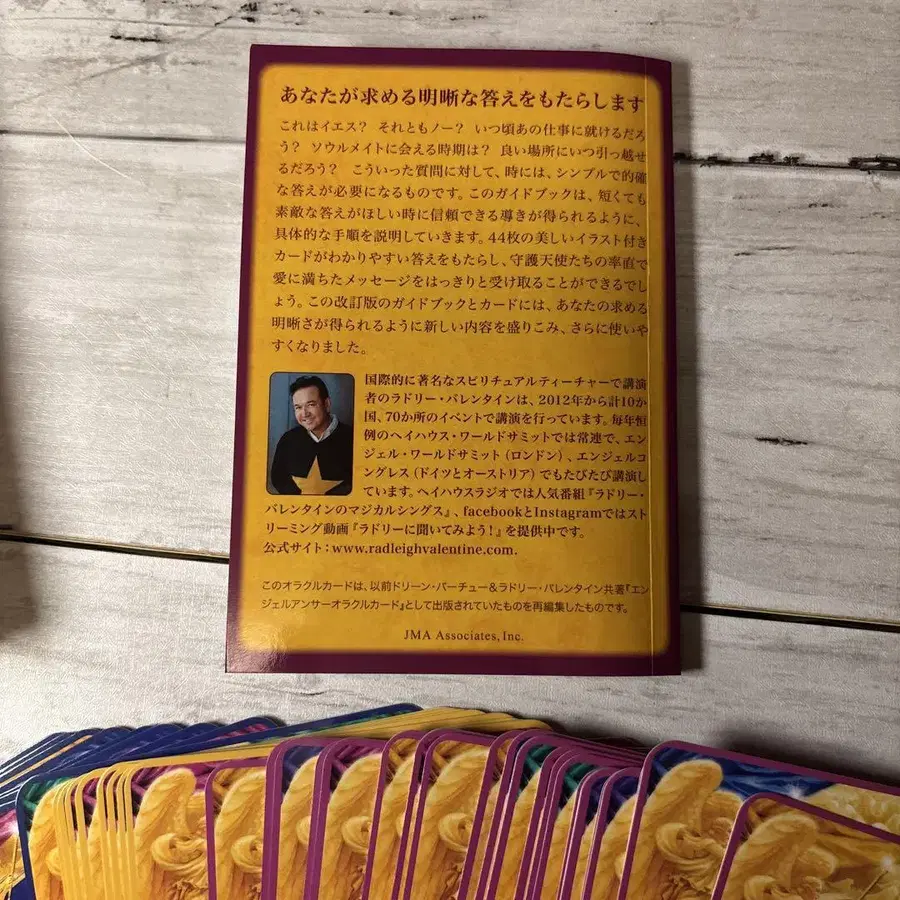 あなたが求める明晰な答えをもたらします
これはイエス？ それともノー？ いつ頃あの仕事に就けるだろ
う？ ソウルメイトに会える時期は？ 良い場所にいつ引っ越せ
るだろう？ こういった質問に対して、時には、シンプルで的確
な答えが必要になるものです。このガイドブックは、短くても
素敵な答えがほしい時に信頼できる導きが得られるように、
具体的な手順を説明していきます。44枚の美しいイラスト付き
カードがわかりやすい答えをもたらし、守護天使たちの率直で
愛に満ちたメッセージをはっきりと受け取ることができるでし
ょう。この改訂版のガイドブックとカードには、あなたの求める
明晰さが得られるように新しい内容を盛りこみ、さらに使いや
すくなりました。
国際的に著名なスピリチュアルティーチャーで講演
者のラドリー・バレンタインは、2012年から計10か
国、70か所のイベントで講演を行っています。毎年恒
例のヘイハウス・ワールドサミットでは常連で、エン
ジェル・ワールドサミット（ロンドン）、エンジェルコ
ングレス（ドイツとオーストリア）でもたびたび講演し
ています。ヘイハウスラジオでは人気番組『ラドリー・
バレンタインのマジカルシングス』、facebookとInstagramではスト
リーミング動画『ラドリーに聞いてみよう！』を提供中です。
公式サイト：www.radleighvalentine.com.
このオラクルカードは、以前ドリーン・バーチュー＆ラドリー・バレンタイン共著『エン
ジェルアンサーオラクルカード』として出版されていたものを再編集したものです。
JMA Associates, Inc.